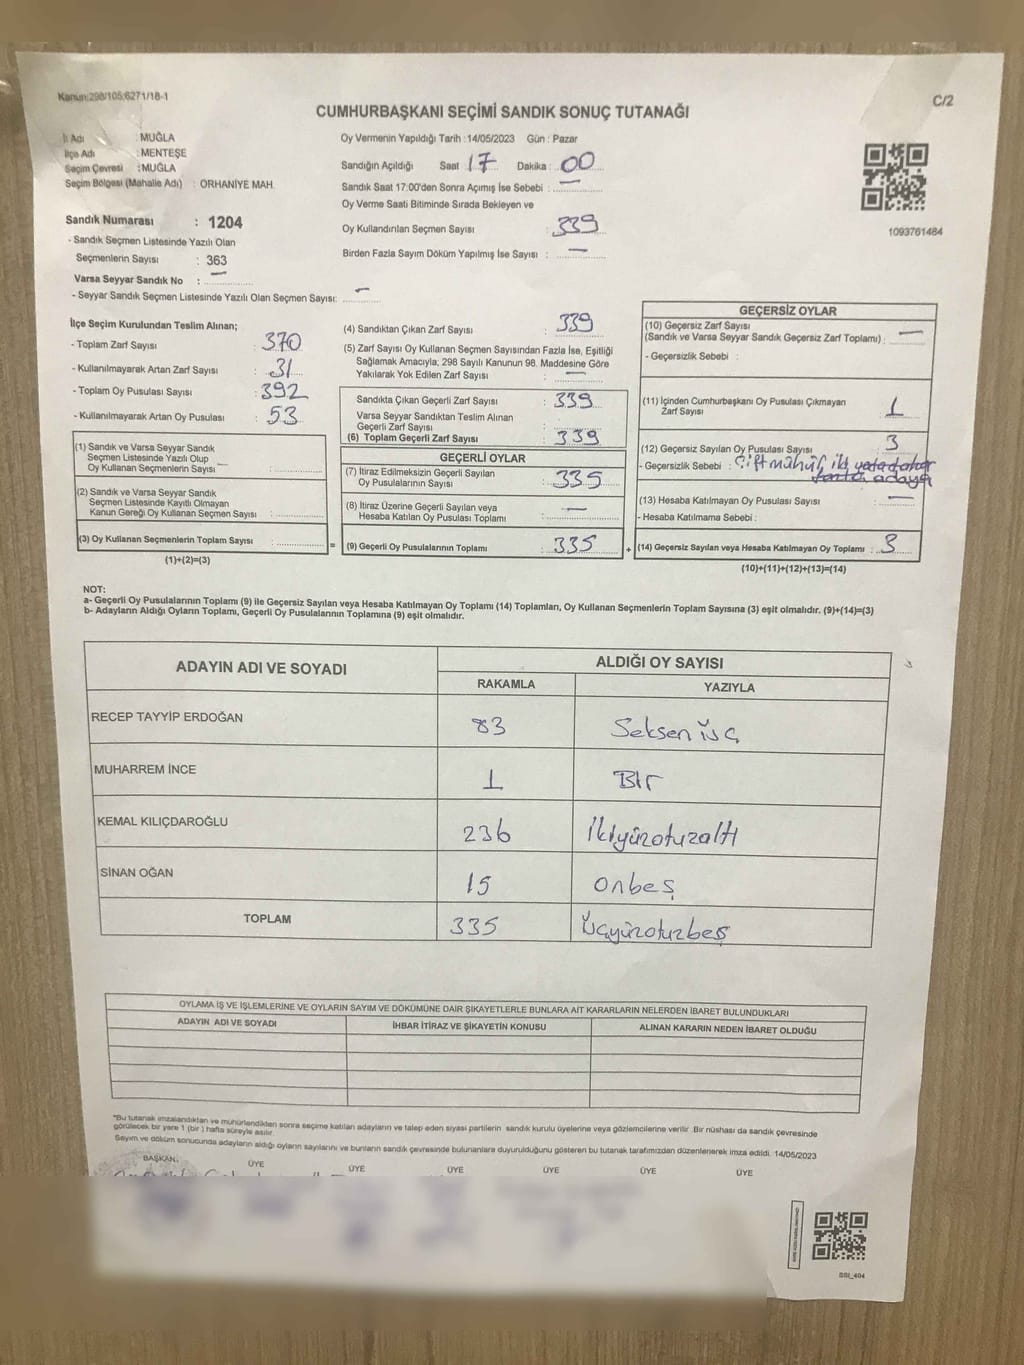 Kanun:298/105;6271/18-1
C/2
CUMHURBAŞKANI SEÇİMİ SANDIK SONUÇ TUTANAĞI
İl Adı : MUĞLA
İlçe Adı : MENTEŞE
Seçim Çevresi : MUĞLA
Seçim Bölgesi (Mahalle Adı) : ORHANİYE MAH.
Sandık Numarası : 1204
- Sandık Seçmen Listesinde Yazılı Olan
Seçmenlerin Sayısı : 363
Varsa Seyyar Sandık No : —
- Seyyar Sandık Seçmen Listesinde Yazılı Olan Seçmen Sayısı: —
Oy Vermenin Yapıldığı Tarih : 14/05/2023 Gün : Pazar
Sandığın Açıldığı Saat 17 Dakika : 00
Sandık Saat 17:00'den Sonra Açımış İse Sebebi : —
Oy Verme Saati Bitiminde Sırada Bekleyen ve
Oy Kullandırılan Seçmen Sayısı : 339
Birden Fazla Sayım Döküm Yapılmış İse Sayısı : —
1093761484
İlçe Seçim Kurulundan Teslim Alınan;
- Toplam Zarf Sayısı : 370
- Kullanılmayarak Artan Zarf Sayısı : 31
- Toplam Oy Pusulası Sayısı : 392
- Kullanılmayarak Artan Oy Pusulası : 53
(1) Sandık ve Varsa Seyyar Sandık
Seçmen Listesinde Yazılı Olup
Oy Kullanan Seçmenlerin Sayısı :
(2) Sandık ve Varsa Seyyar Sandık
Seçmen Listesinde Kayıtlı Olmayan
Kanun Gereği Oy Kullanan Seçmen Sayısı :
(3) Oy Kullanan Seçmenlerin Toplam Sayısı : =
(1)+(2)=(3)
(4) Sandıktan Çıkan Zarf Sayısı : 339
(5) Zarf Sayısı Oy Kullanan Seçmen Sayısından Fazla İse, Eşitliği
Sağlamak Amacıyla; 298 Sayılı Kanunun 98. Maddesine Göre
Yakılarak Yok Edilen Zarf Sayısı : —
Sandıkta Çıkan Geçerli Zarf Sayısı : 339
Varsa Seyyar Sandıktan Teslim Alınan
Geçerli Zarf Sayısı :
(6) Toplam Geçerli Zarf Sayısı : 339
GEÇERLİ OYLAR
(7) İtiraz Edilmeksizin Geçerli Sayılan
Oy Pusulalarının Sayısı : 335
(8) İtiraz Üzerine Geçerli Sayılan veya
Hesaba Katılan Oy Pusulası Toplamı : —
(9) Geçerli Oy Pusulalarının Toplamı : 335 +
GEÇERSİZ OYLAR
(10) Geçersiz Zarf Sayısı
(Sandık ve Varsa Seyyar Sandık Geçersiz Zarf Toplamı) : —
- Geçersizlik Sebebi :
(11) İçinden Cumhurbaşkanı Oy Pusulası Çıkmayan
Zarf Sayısı : 1
(12) Geçersiz Sayılan Oy Pusulası Sayısı : 3
- Geçersizlik Sebebi : Çift mühür, iki yada daha
fazla adaya
(13) Hesaba Katılmayan Oy Pusulası Sayısı : —
- Hesaba Katılmama Sebebi :
(14) Geçersiz Sayılan veya Hesaba Katılmayan Oy Toplamı : 3
(10)+(11)+(12)+(13)=(14)
NOT:
a- Geçerli Oy Pusulalarının Toplamı (9) ile Geçersiz Sayılan veya Hesaba Katılmayan Oy Toplamı (14) Toplamları, Oy Kullanan Seçmenlerin Toplam Sayısına (3) eşit olmalıdır. (9)+(14)=(3)
b- Adayların Aldığı Oyların Toplamı, Geçerli Oy Pusulalarının Toplamına (9) eşit olmalıdır.
ADAYIN ADI VE SOYADI ALDIĞI OY SAYISI
RAKAMLA YAZIYLA
RECEP TAYYİP ERDOĞAN 83 Seksen üç
MUHARREM İNCE 1 Bir
KEMAL KILIÇDAROĞLU 236 İkiyüzotuzaltı
SİNAN OĞAN 15 onbeş
TOPLAM 335 Üçyüzotuzbeş
OYLAMA İŞ VE İŞLEMLERİNE VE OYLARIN SAYIM VE DÖKÜMÜNE DAİR ŞİKAYETLERLE BUNLARA AİT KARARLARIN NELERDEN İBARET BULUNDUKLARI
ADAYIN ADI VE SOYADI İHBAR İTİRAZ VE ŞİKAYETİN KONUSU ALINAN KARARIN NEDEN İBARET OLDUĞU
*Bu tutanak imzalandıktan ve mühürlendikten sonra seçime katılan adayların ve talep eden siyasi partilerin sandık kurulu üyelerine veya gözlemcilerine verilir .Bir nüshası da sandık çevresinde
görülecek bir yere 1 (bir ) hafta süreyle asılır.
Sayım ve döküm sonucunda adayların aldığı oyların sayılarını ve bunların sandık çevresinde bulunanlara duyurulduğunu gösteren bu tutanak tarafımızdan düzenlenerek imza edildi. 14/05/2023
BAŞKAN. ÜYE ÜYE ÜYE ÜYE ÜYE ÜYE
SSI_404